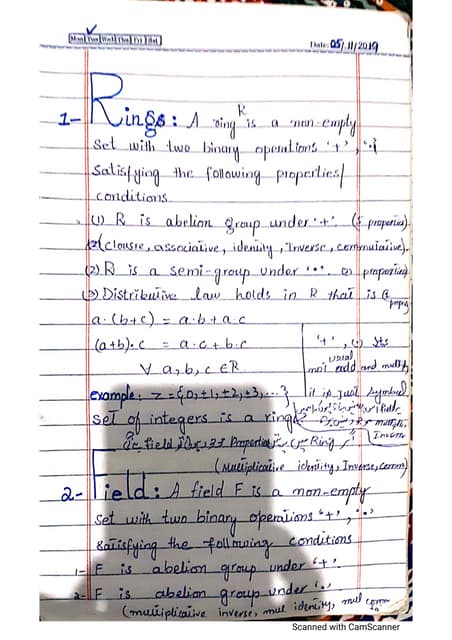 Mon Tue Wed Thu Fri Sat
Date: 05/11/2019
1- Rings: A ring R is a non-empty
set with two binary operations '+', '.'
satisfying the following properties/
conditions.
(1) R is abelion group under '+'. (5 properties)
(clousre, associative, idenity, Inverse, commutative).
(2) R is a semi-group under '.'. (2) properties
(3) Distributive law holds in R that is
a.(b+c) = a.b+a.c
(a+b).c = a.c + b.c
∀ a,b,c ∈ R
'+', (.) Its
not usual add and multip
it is Just symbol
example: z = {0,±1,±2,±3,...}
set of integers is a ring
Inverse
Properties Ring
(Multiplicative identity, Inverse, comm)
2- Field: A field F is a non-empty
set with two binary operations '+', '.'
satisfying the following conditions
1- F is abelion group under '+'
2- F is abelion group under '.'
(multiplicative inverse, mul idenity, mul comm
Scanned with CamScanner